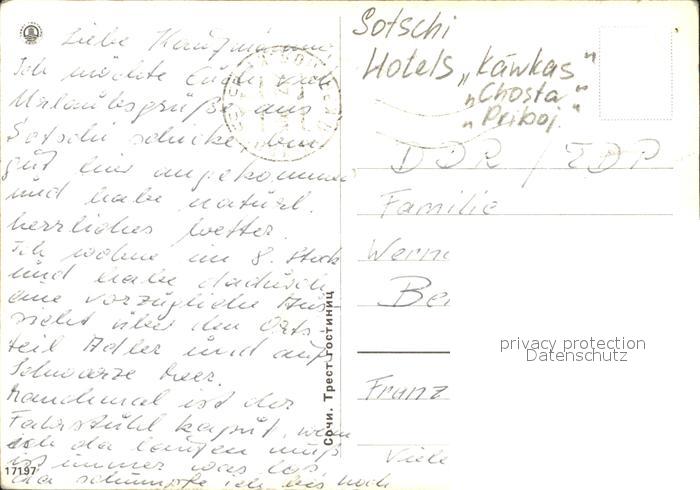 Liebe Kaufmanns
Ich möchte Euch viele
Urlaubsgrüße aus
Sotschi schicken, bin
gut hier angekommen
und habe natürl.
herrliches Wetter.
Ich wohne im 8. Stock
und habe dadurch
eine vorzügliche Aus-
sicht über den Orts-
teil Adler und auf's
Schwarze Meer.
Manchmal ist der
Fahrstuhl kaputt, wenn
ich da laufen muß
ist immer was los,
da schimpfe ich bis hoch
17197
Сочи. Трест гостиниц
Sotschi
Hotels „Kawkas"
„Chosta"
„Priboj"
DDR / ГДР
Familie
Wern
Be
privacy protection
Datenschutz
Franz
Viele